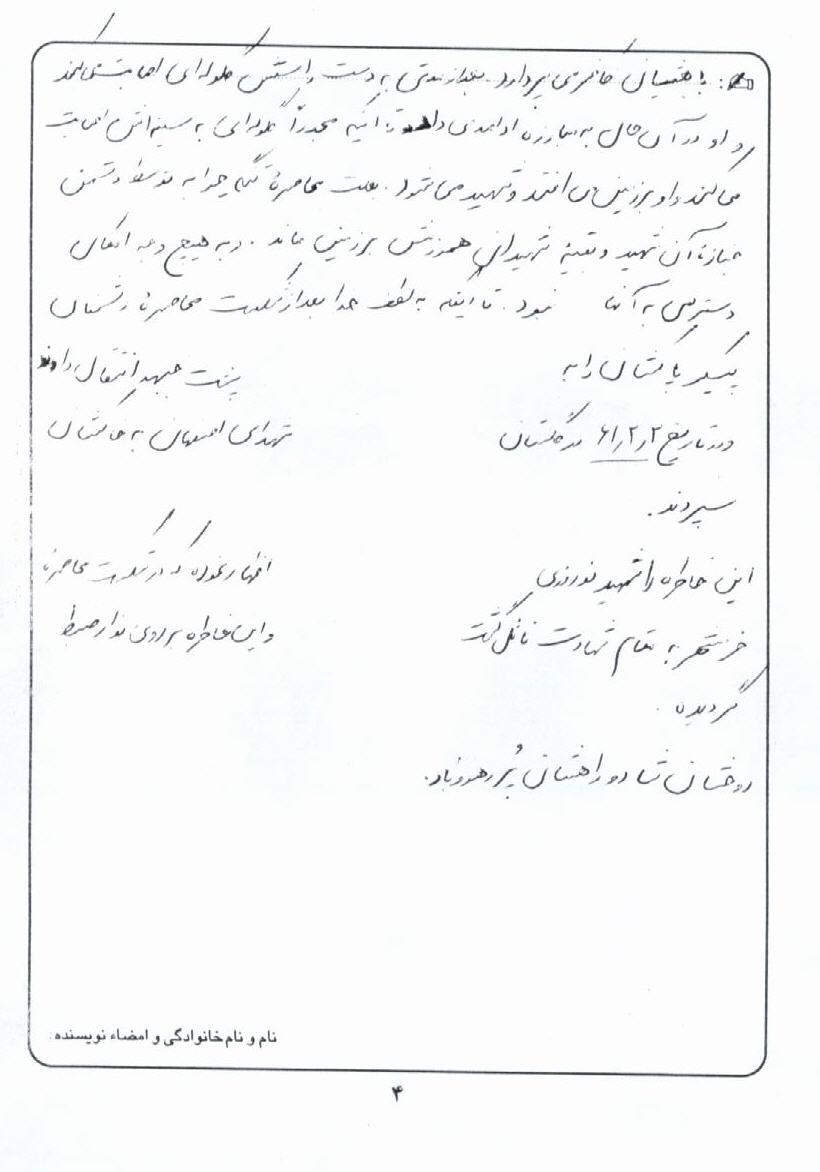 با بعثیان کافر می پردازد. بعد از مدتی به دست راستش گلوله ای اصابت می کند
و او در آن حال به مبارزه ادامه می داد تا اینکه مجدداً گلوله ای به سینه اش اصابت
می کند و او بر زمین می افتد و شهید می شود. بعلت محاصرهٔ تنگه چزابه توسط دشمن
جنازهٔ آن شهید و بقیهٔ شهیدان همرزمش بر زمین ماند. و به هیچ وجه امکان
دسترسی به آنها نبود. تا اینکه به لطف خدا بعد از شکست محاصرهٔ دشمنان
پیکر پاکشان را به پشت جبهه انتقال دادند
و در تاریخ ۶۱/۲/۲ در گلستان شهدای اصفهان به خاکشان
سپردند.
این خاطره را شهید نوروزی اظهار نموده که در شکست محاصرهٔ
خرمشهر به مقام شهادت نائل گشت و این خاطره بر روی نوار ضبط
گردیده.
روحشان شاد و راهشان پُر رهرو باد.
نام و نام خانوادگی و امضاء نویسنده:
۴